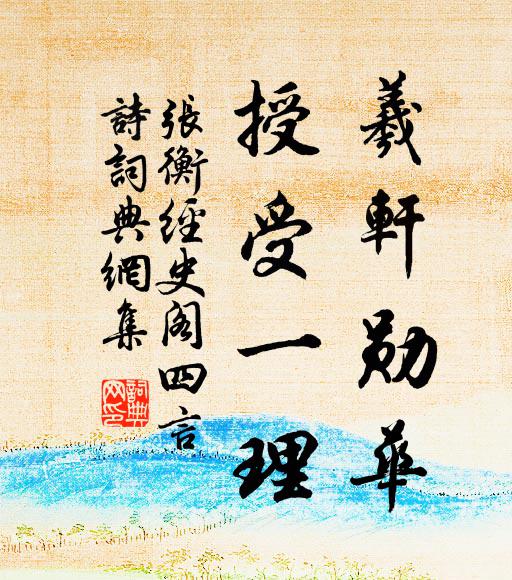 羲軒勛華
授受一理
張衡經史阁四言
詩詞典網集
詞典
网印